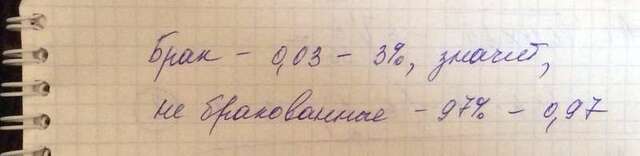 Брак – 0,03 – 3%, значит,
не бракованные – 97% – 0,97